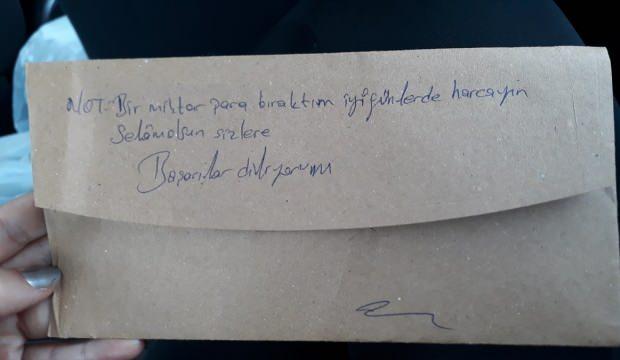 NOT: Bir miktar para bıraktım iyi günlerde harcayın
Selâmolsun sizlere
Başarılar diliyorum